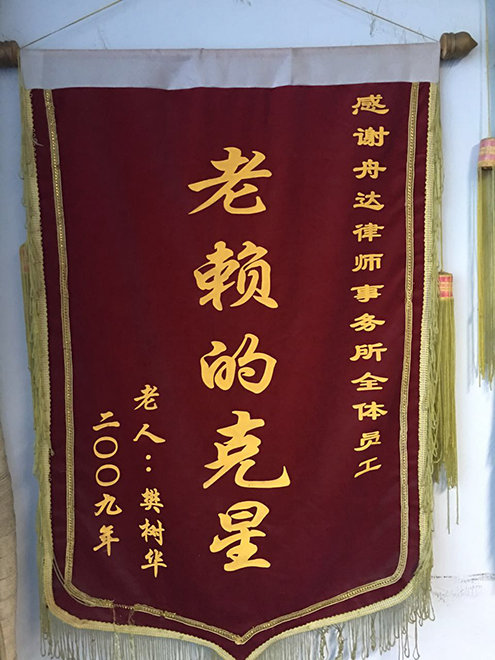 感谢舟达律师事务所全体员工
老赖的克星
老人：樊树华
二〇〇九年